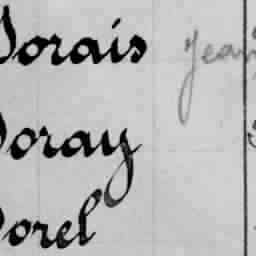 Dorais Jean
Doray
Dorel